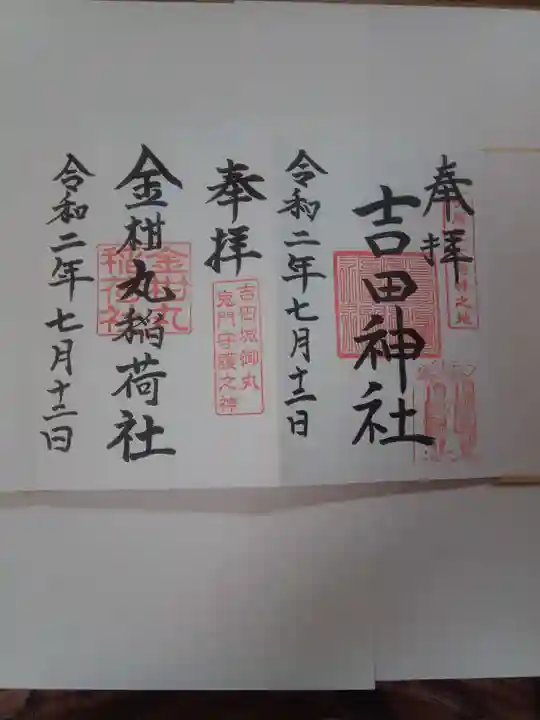 奉拝
吉田神社
令和二年七月十二日
奉拝
吉田城御丸
鬼門守護之神
金柑丸稲荷社
金柑丸
稲荷社
令和二年七月十二日